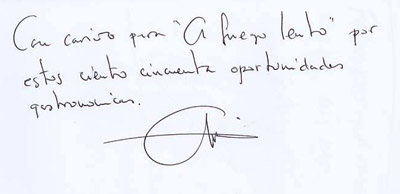 Con cariño para "A fuego lento" por
estos ciento cincuenta oportunidades
gastronomicas.